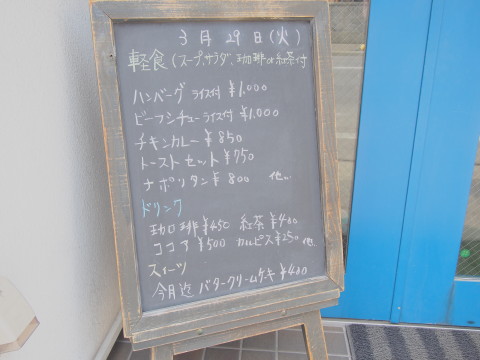 3月29日(火)
軽食(スープ、サラダ、珈琲or紅茶付
ハンバーグ ライス付 ¥1,000
ビーフシチュー ライス付 ¥1,000
チキンカレー ¥850
トーストセット ¥750
ナポリタン ¥800 他...
ドリンク
珈琲 ¥450 紅茶 ¥480
ココア ¥500 カルピス ¥250 他..
スイーツ
今月迄 バタークリームケーキ ¥400